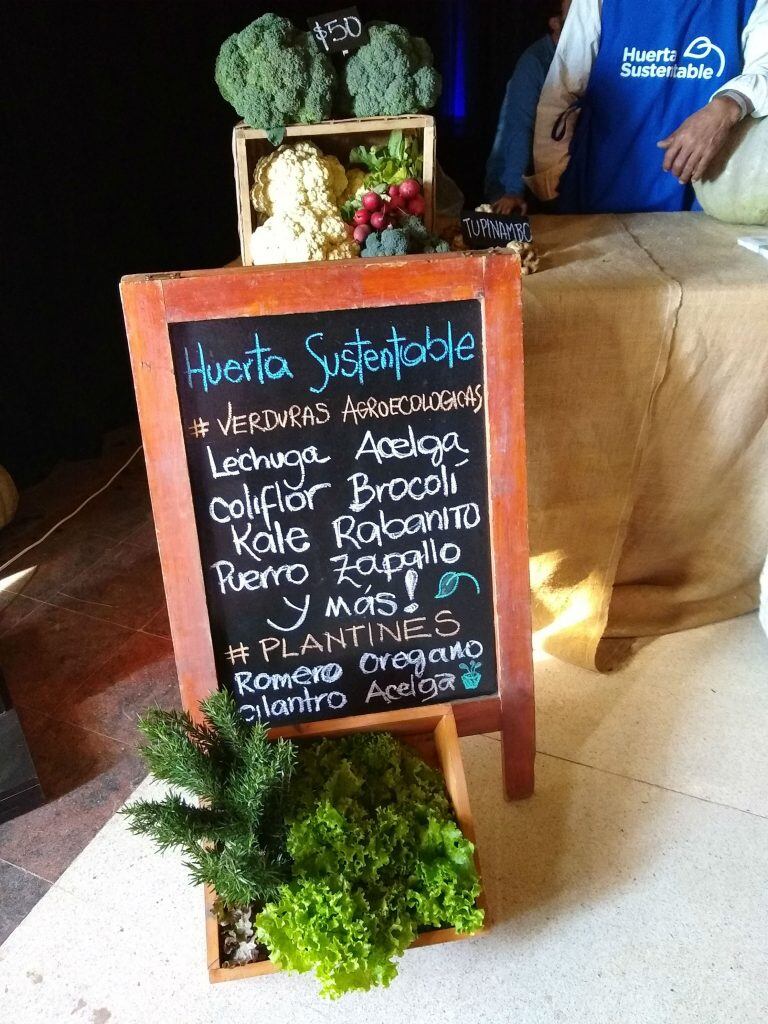 $50
Huerta
Sustentable
TUPINAMBO
Huerta Sustentable
# VERDURAS AGROECOLOGICAS
Lechuga Acelga
Coliflor Brocolí
Kale Rabanito
Puerro Zapallo
y más!
# PLANTINES
Romero Oregano
Cilantro Acelga